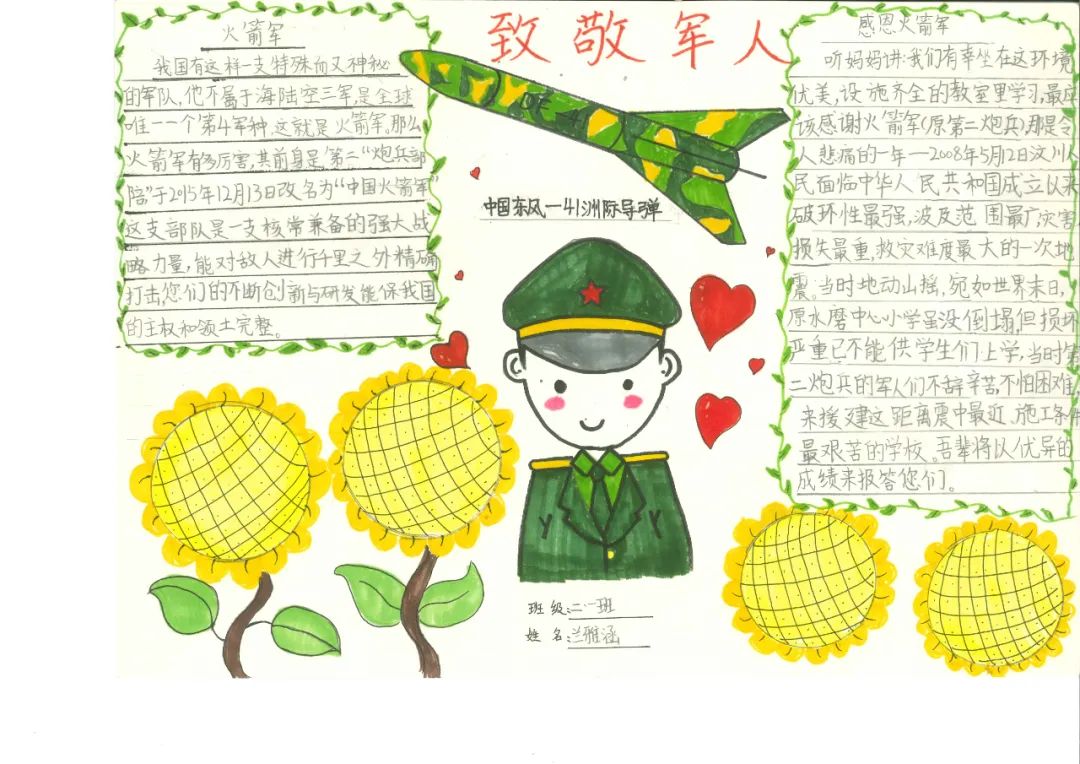 致敬军人
火箭军
我国有这样一支特殊而又神秘
的军队,他不属于海陆空三军,是全球
唯一一个第4军种,这就是火箭军。那么
火箭军有多厉害,其前身是第二“炮兵部
陪”于2015年12月13日改名为“中国火箭军”
这支部队是一支核常兼备的强大战
略力量,能对敌人进行千里之外精确
打击,您们的不断创新与研发能保我国
的主权和领土完整。
DF-41
中国东风-41洲际导弹
感恩火箭军
听妈妈讲:我们有幸坐在这环境
优美,设施齐全的教室里学习,最应
该感谢火箭军(原第二炮兵),那是令
人悲痛的一年——2008年5月12日汶川人
民面临中华人民共和国成立以来
破环性最强,波及范围最广,灾害
损失最重,救灾难度最大的一次地
震。当时地动山摇,宛如世界末日,
原水磨中心小学虽没倒塌,但损坏
严重已不能供学生们上学,当时第
二炮兵的军人们不辞辛苦,不怕困难,
来援建这距离震中最近,施工条件
最艰苦的学校。吾辈将以优异的
成绩来报答您们。
班级:二·一班
姓名:兰雅涵